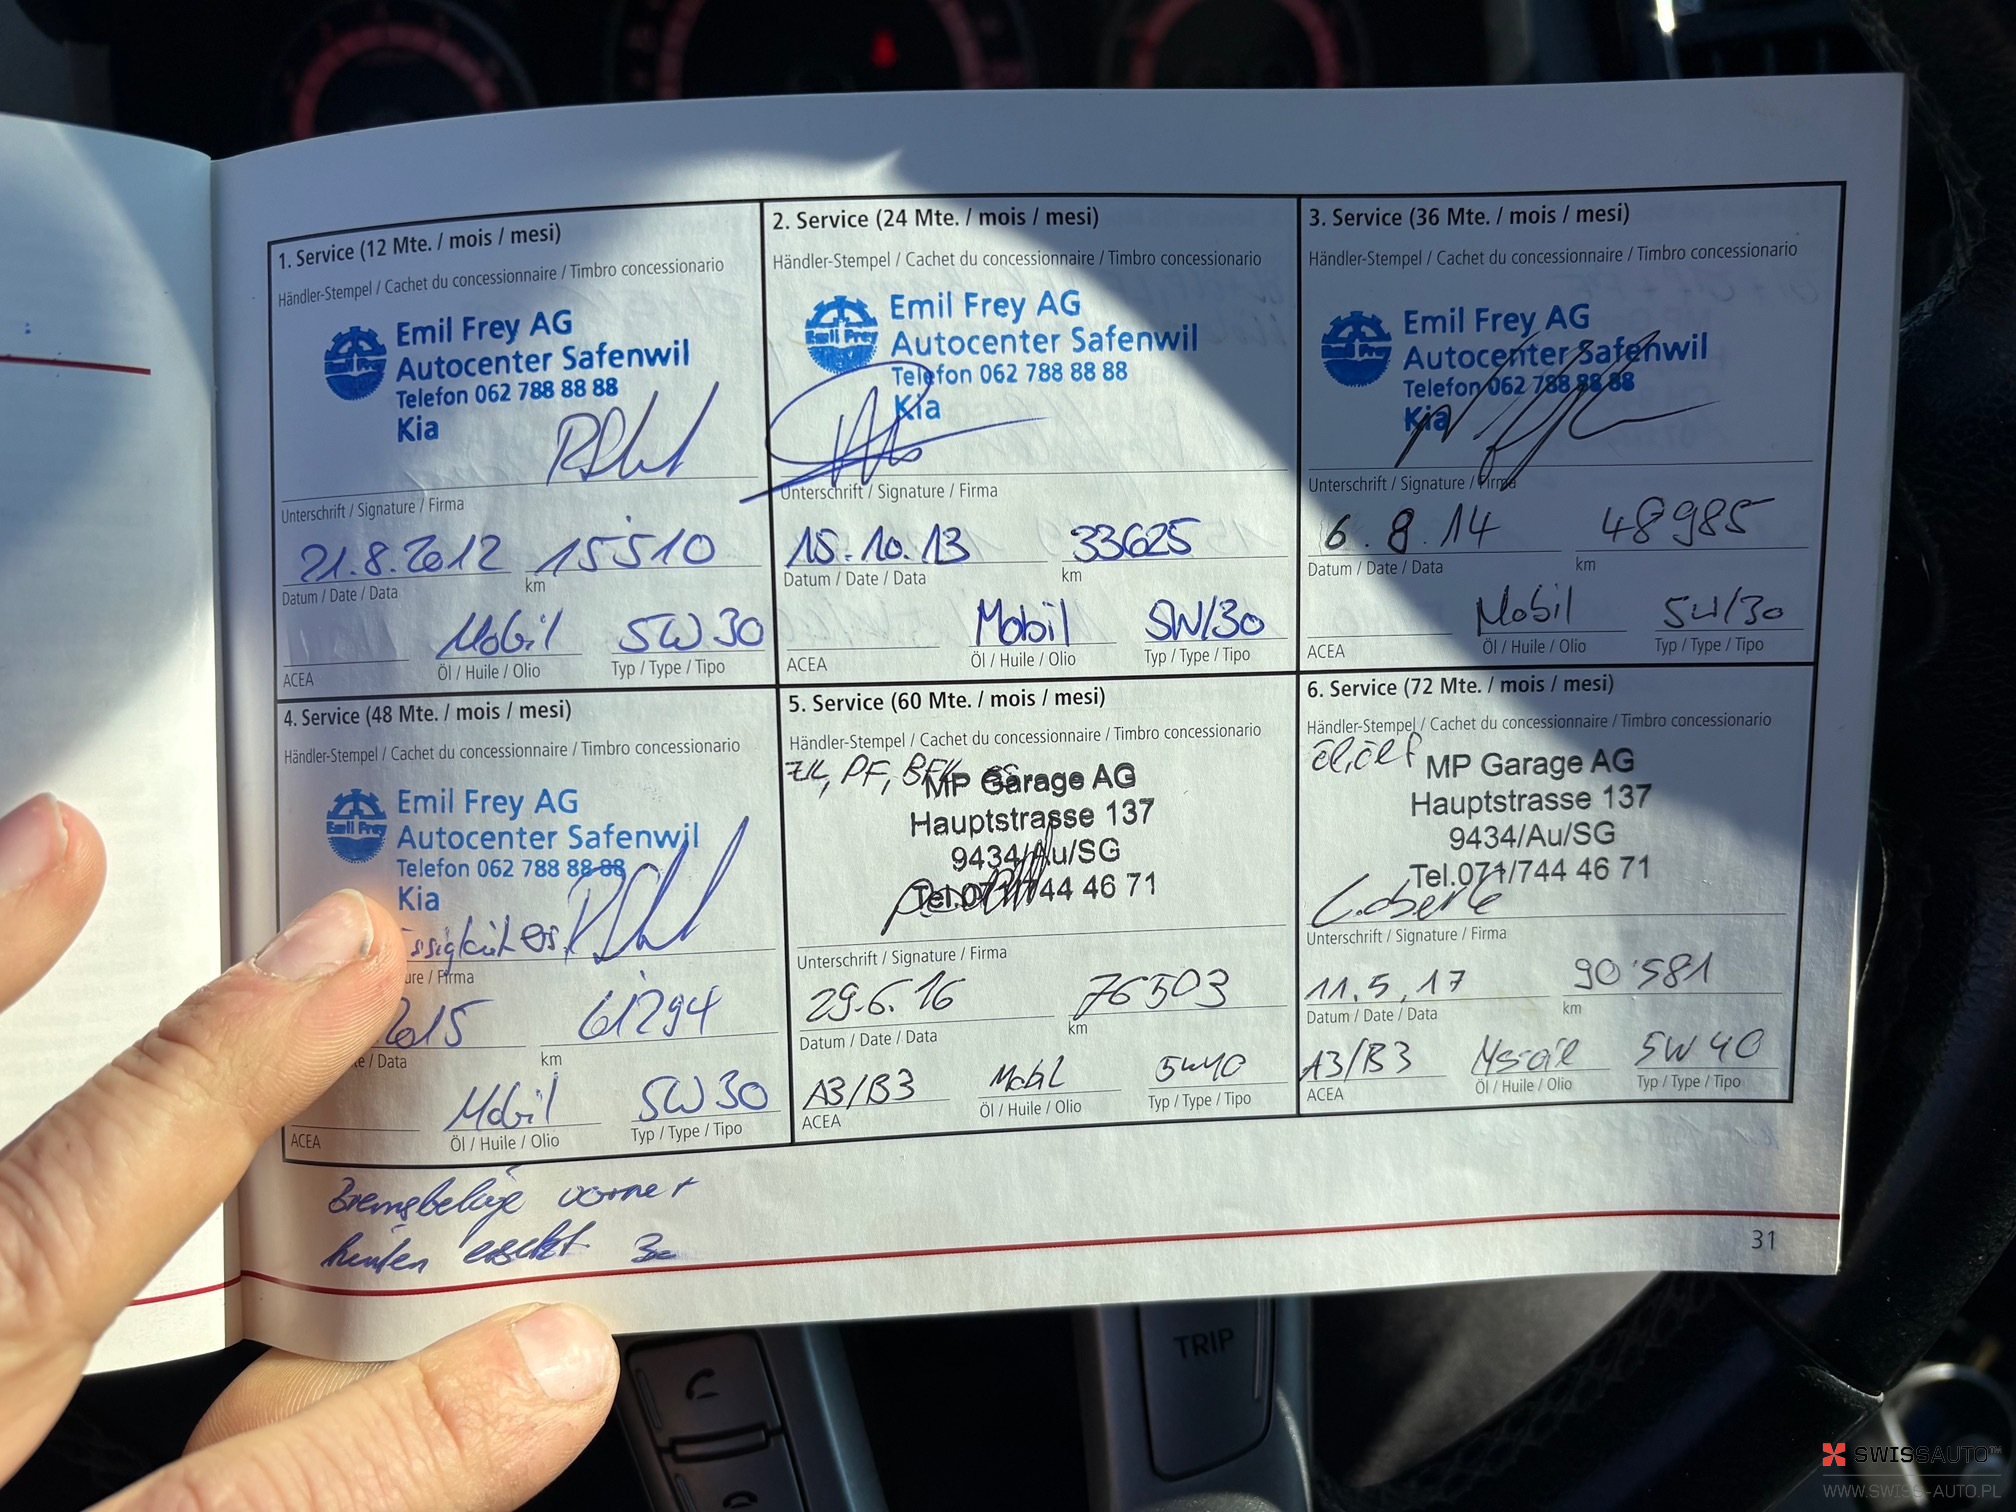 1. Service (12 Mte. / mois / mesi)
Händler-Stempel / Cachet du concessionnaire / Timbro concessionario
Emil Frey
Emil Frey AG
Autocenter Safenwil
Telefon 062 788 88 88
Kia
Unterschrift / Signature / Firma
21.8.2012 15'510
Datum / Date / Data km
Mobil 5W30
ACEA Öl / Huile / Olio Typ / Type / Tipo
2. Service (24 Mte. / mois / mesi)
Händler-Stempel / Cachet du concessionnaire / Timbro concessionario
Emil Frey
Emil Frey AG
Autocenter Safenwil
Telefon 062 788 88 88
Kia
Unterschrift / Signature / Firma
15.10.13 33625
Datum / Date / Data km
Mobil 5W/30
ACEA Öl / Huile / Olio Typ / Type / Tipo
3. Service (36 Mte. / mois / mesi)
Händler-Stempel / Cachet du concessionnaire / Timbro concessionario
Emil Frey
Emil Frey AG
Autocenter Safenwil
Telefon 062 788 88 88
Kia
Unterschrift / Signature / Firma
6.8.14 48985
Datum / Date / Data km
Mobil 5W/30
ACEA Öl / Huile / Olio Typ / Type / Tipo
4. Service (48 Mte. / mois / mesi)
Händler-Stempel / Cachet du concessionnaire / Timbro concessionario
Emil Frey
Emil Frey AG
Autocenter Safenwil
Telefon 062 788 88 88
Kia
ure / Firma
2015 61'294
te / Data km
Mobil 5W30
ACEA Öl / Huile / Olio Typ / Type / Tipo
Bremsbeläge vorne +
hinten ersetzt
5. Service (60 Mte. / mois / mesi)
Händler-Stempel / Cachet du concessionnaire / Timbro concessionario
ZK, PF, BFK
MP Garage AG
Hauptstrasse 137
9434/Au/SG
Tel.071/744 46 71
Unterschrift / Signature / Firma
29.6.16 76503
Datum / Date / Data km
A3/B3 Mobil 5W40
ACEA Öl / Huile / Olio Typ / Type / Tipo
6. Service (72 Mte. / mois / mesi)
Händler-Stempel / Cachet du concessionnaire / Timbro concessionario
MP Garage AG
Hauptstrasse 137
9434/Au/SG
Tel.071/744 46 71
Unterschrift / Signature / Firma
11.5.17 90'581
Datum / Date / Data km
A3/B3 5W40
ACEA Öl / Huile / Olio Typ / Type / Tipo
31
TRIP
SWISSAUTO™
WWW.SWISS-AUTO.PL